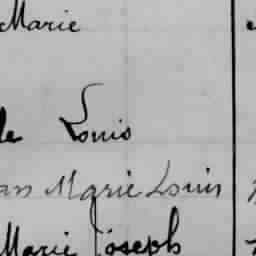 Marie
le Louis
an Marie Louis
Marie Joseph